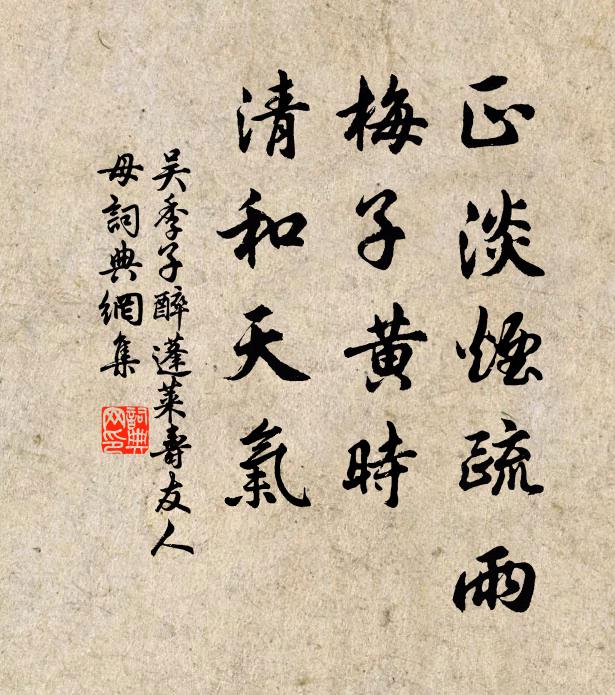 正淡煙疏雨
梅子黃時
清和天氣
吴季子醉蓬萊壽友人
母詞典網集
詞典
网印